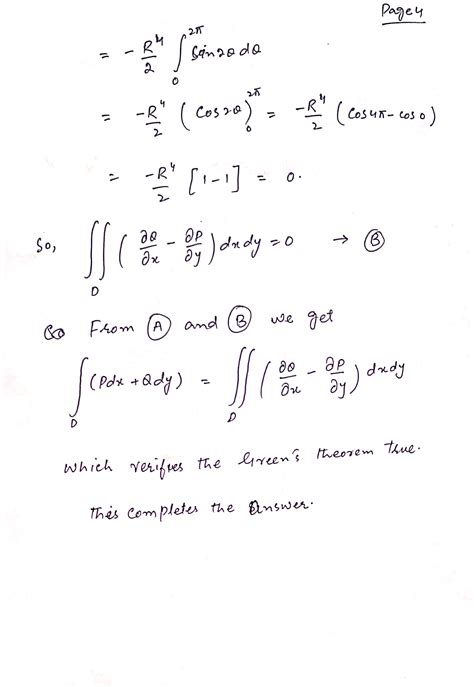 Page 4
= - R⁴/2 ∫₀^2π Sin2θ dθ
= -R⁴/2 (Cos2θ)₀^2π = -R⁴/2 (Cos4π - cos0)
= -R⁴/2 [1-1] = 0.
So, ∬_D (∂Q/∂x - ∂P/∂y) dxdy = 0 → Ⓑ
From Ⓐ and Ⓑ we get
∫_D (Pdx + Qdy) = ∬_D (∂Q/∂x - ∂P/∂y) dxdy
which verifies the Green's theorem true.
this completes the Answer.